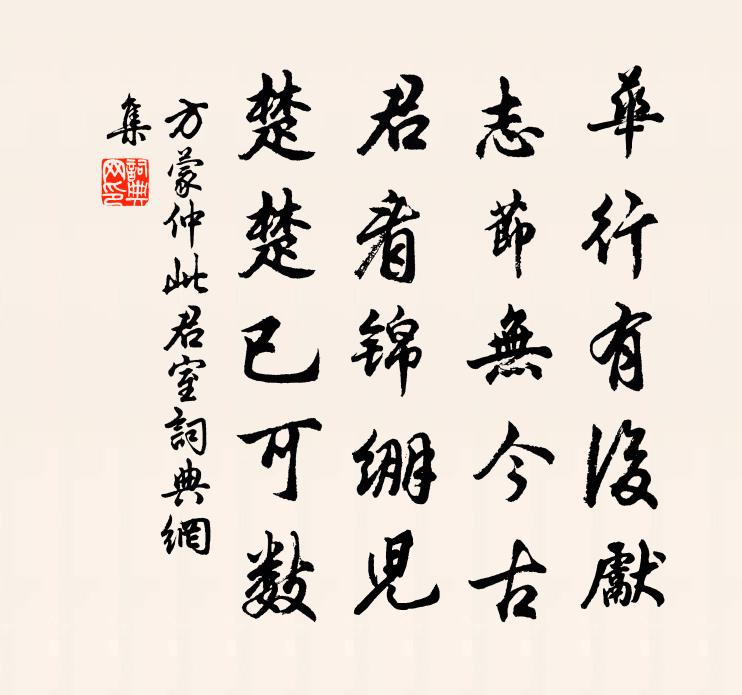 華行有後獻
志節無今古
君看錦繃兒
楚楚已可数
方蒙仲此君室詞典網
集
詞典網印